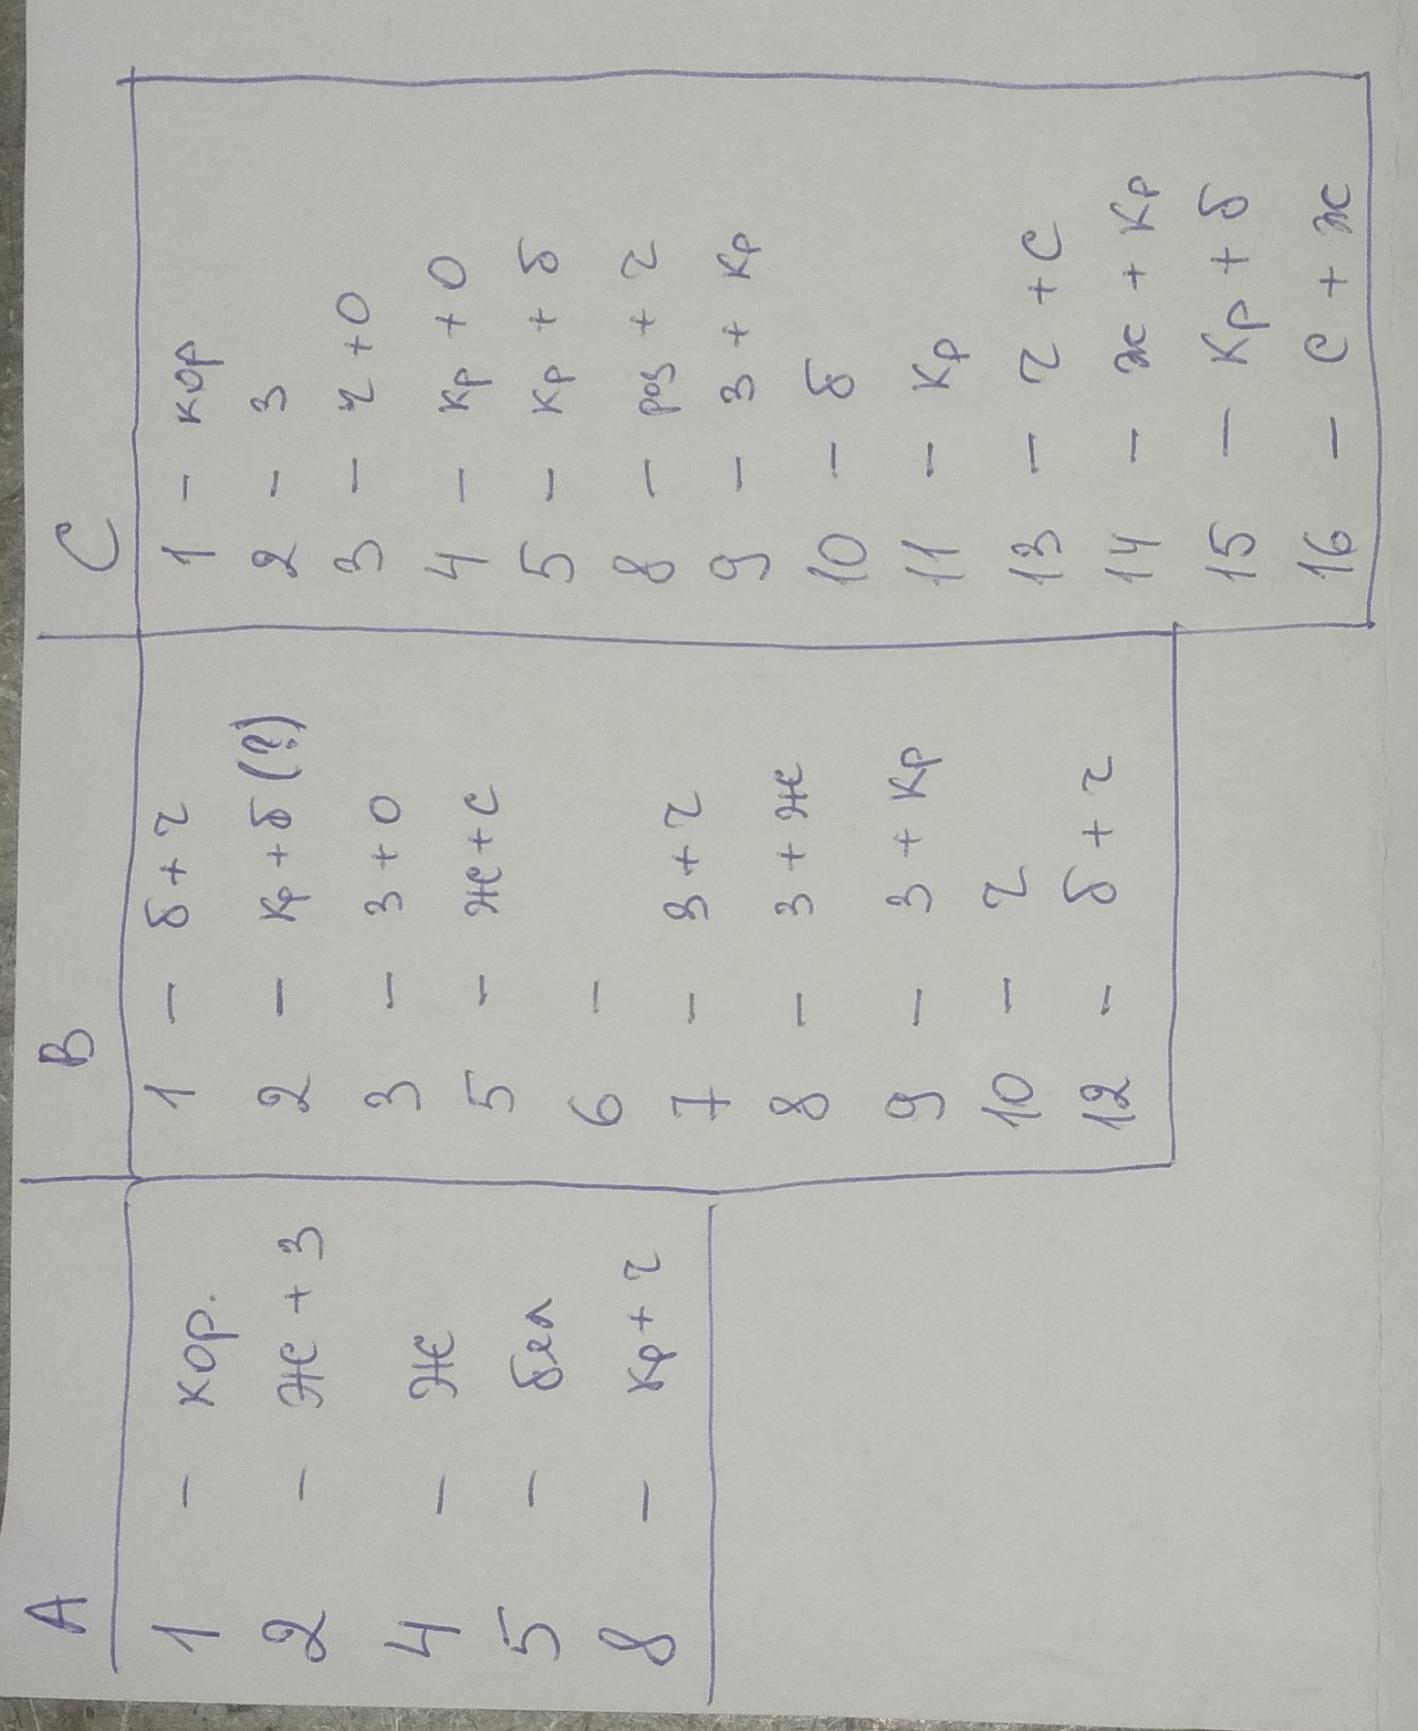 A
1 - кор.
2 - Ж + З
4 - Ж
5 - бел
8 - кр + ч
B
1 - б + ч
2 - кр + б (?)
3 - З + О
5 - Ж + С
6 -
7 - З + ч
8 - З + Ж
9 - З + кр
10 - ч
12 - б + ч
C
1 - кор
2 - З
3 - ч + О
4 - кр + О
5 - кр + б
8 - роз + ч
9 - З + кр
10 - б
11 - кр
13 - ч + С
14 - ж + кр
15 - кр + б
16 - С + ж